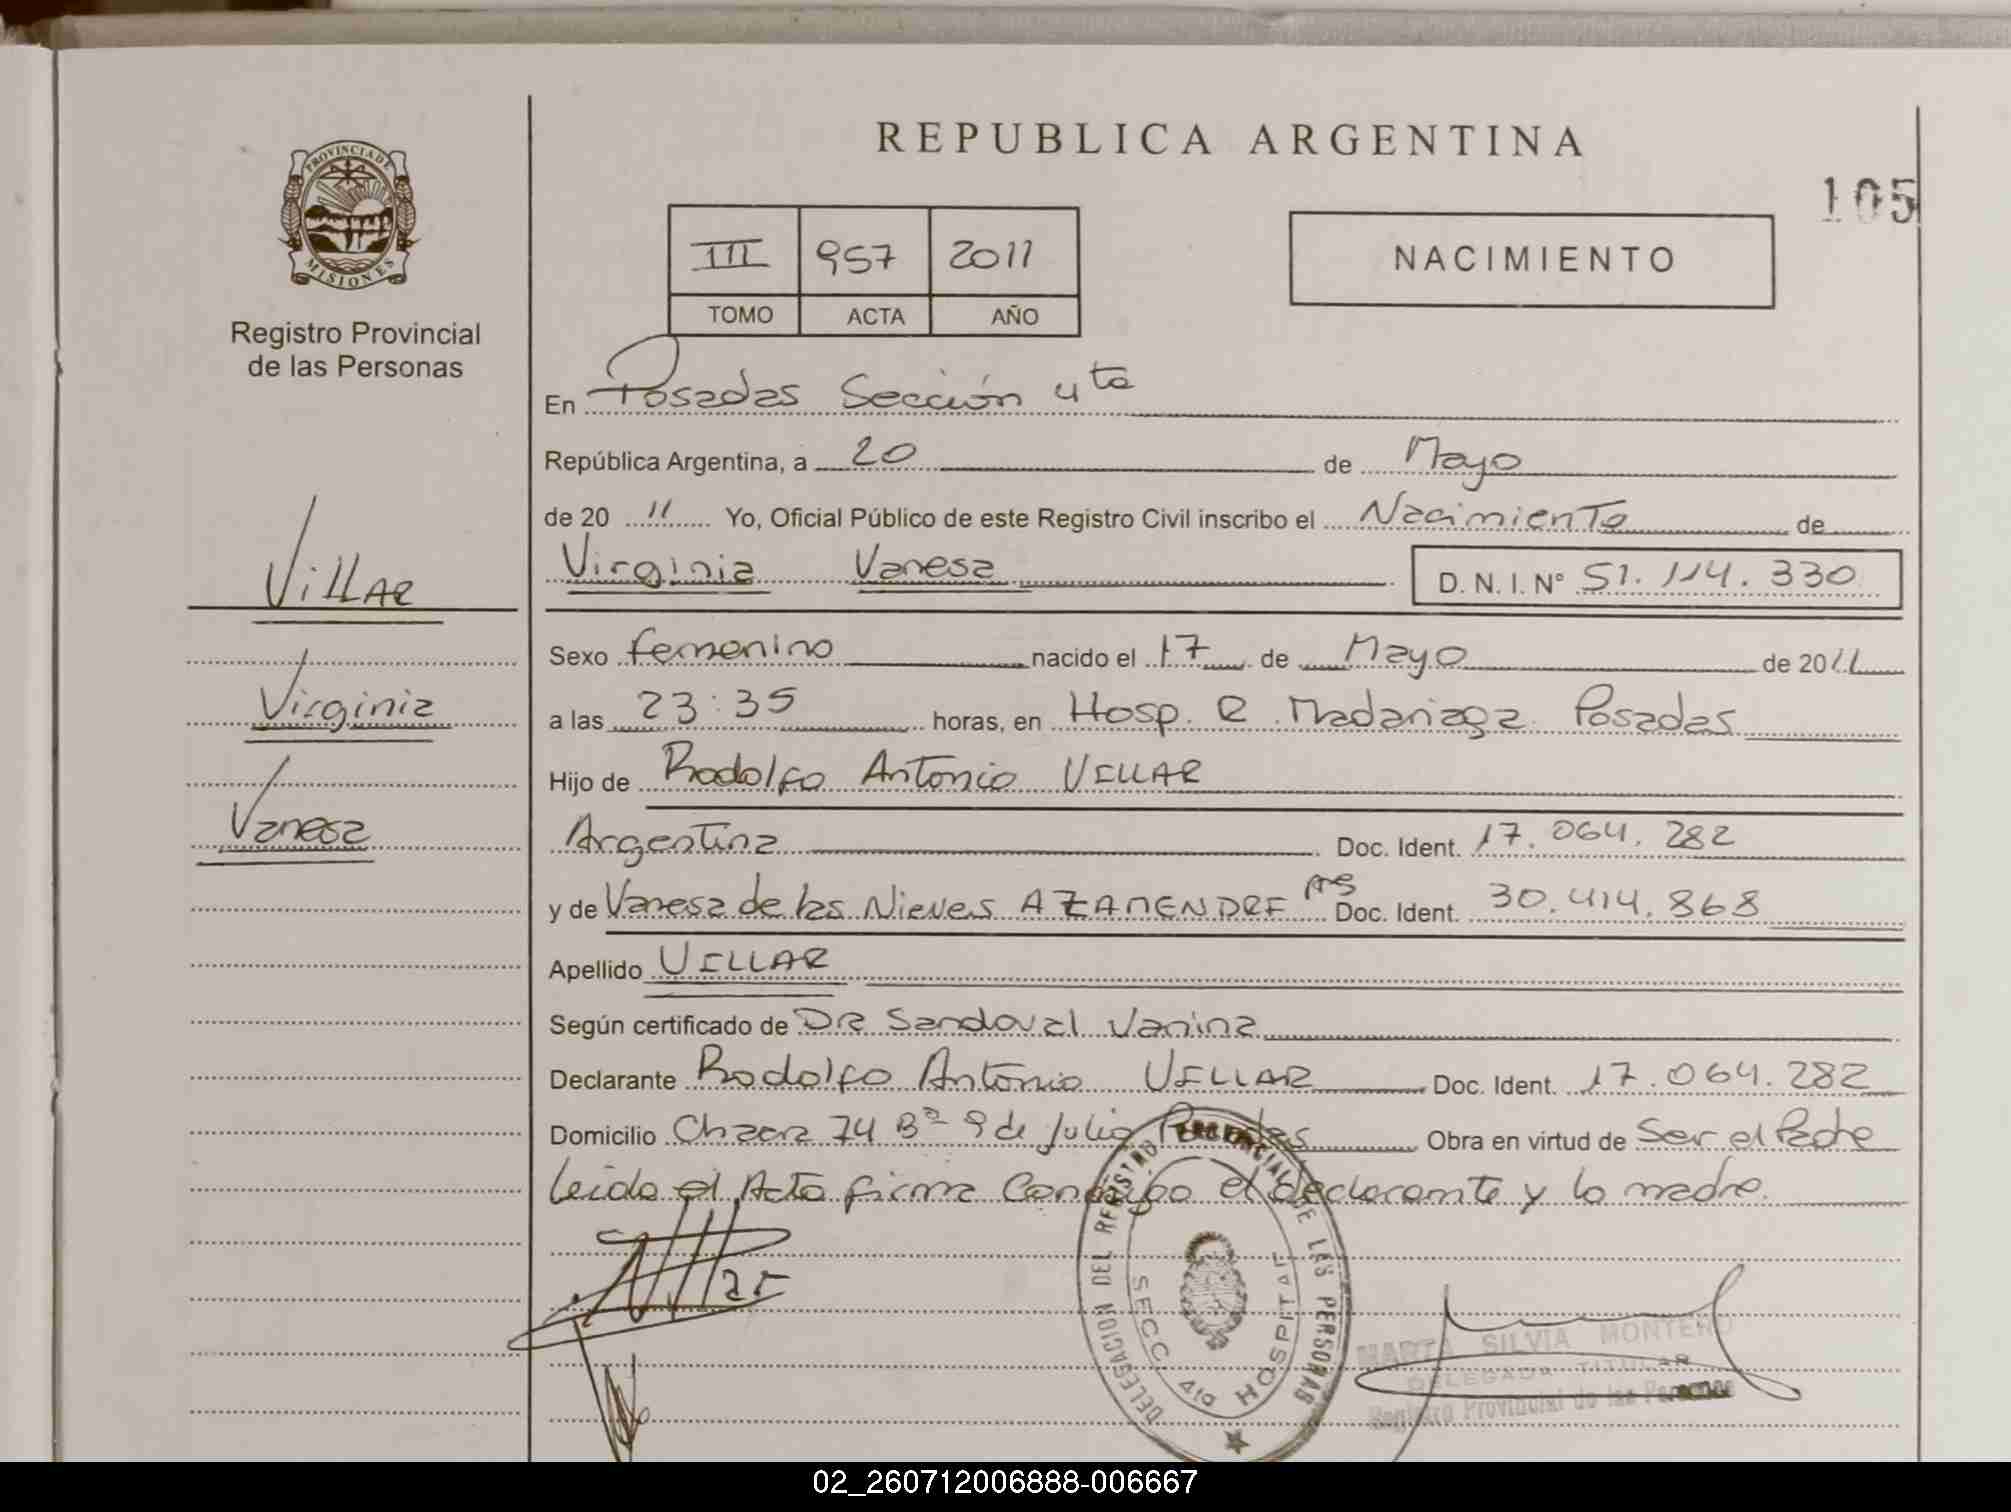 REPUBLICA ARGENTINA
105
PROVINCIA DE MISIONES
Registro Provincial
de las Personas
III 957 2011
TOMO ACTA AÑO
NACIMIENTO
En Posadas Sección 4ta
República Argentina, a 20 de Mayo
de 20 11 Yo, Oficial Público de este Registro Civil inscribo el Nacimiento de
Virginia Vanesa D. N. I. Nº 51.114.330
VILLAR
Sexo femenino nacido el 17 de Mayo de 2011
Virginia
a las 23:35 horas, en Hosp. R. Madariaga Posadas
Hijo de Rodolfo Antonio VILLAR
Vanesa
Argentina Doc. Ident. 17.064.282
y de Vanesa de las Nieves AZAMENDRE Doc. Ident. 30.414.868
Apellido VILLAR
Según certificado de DRa Sandoval Vanina
Declarante Rodolfo Antonio VILLAR Doc. Ident. 17.064.282
Domicilio Chacra 74 Bº 9 de Julio Posadas Obra en virtud de Ser el Padre
Leida el Acta firma Conmigo el declarante y la madre.
DELEGACION DEL REGISTRO PROVINCIAL DE LAS PERSONAS
SECC. 4ta HOSPITAL
MARTA SILVIA MONTERO
DELEGADA TITULAR
Registro Provincial de las Personas
02_260712006888-006667